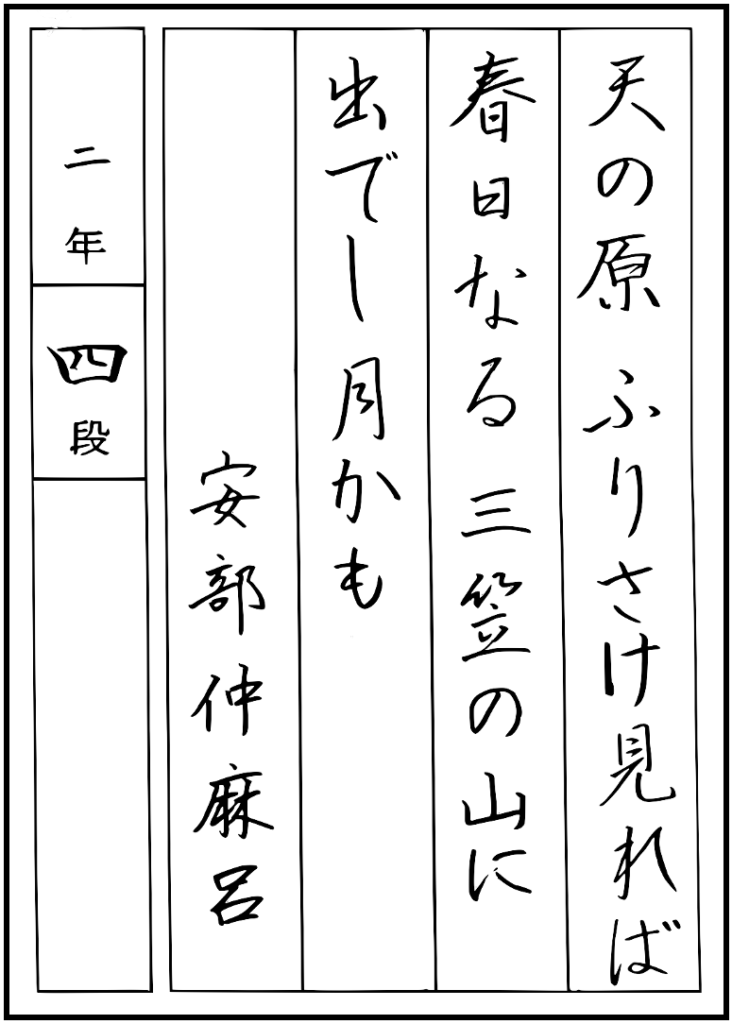 天の原 ふりさけ見れば
春日なる 三笠の山に
出でし月かも
安部仲麻呂
二年
四段